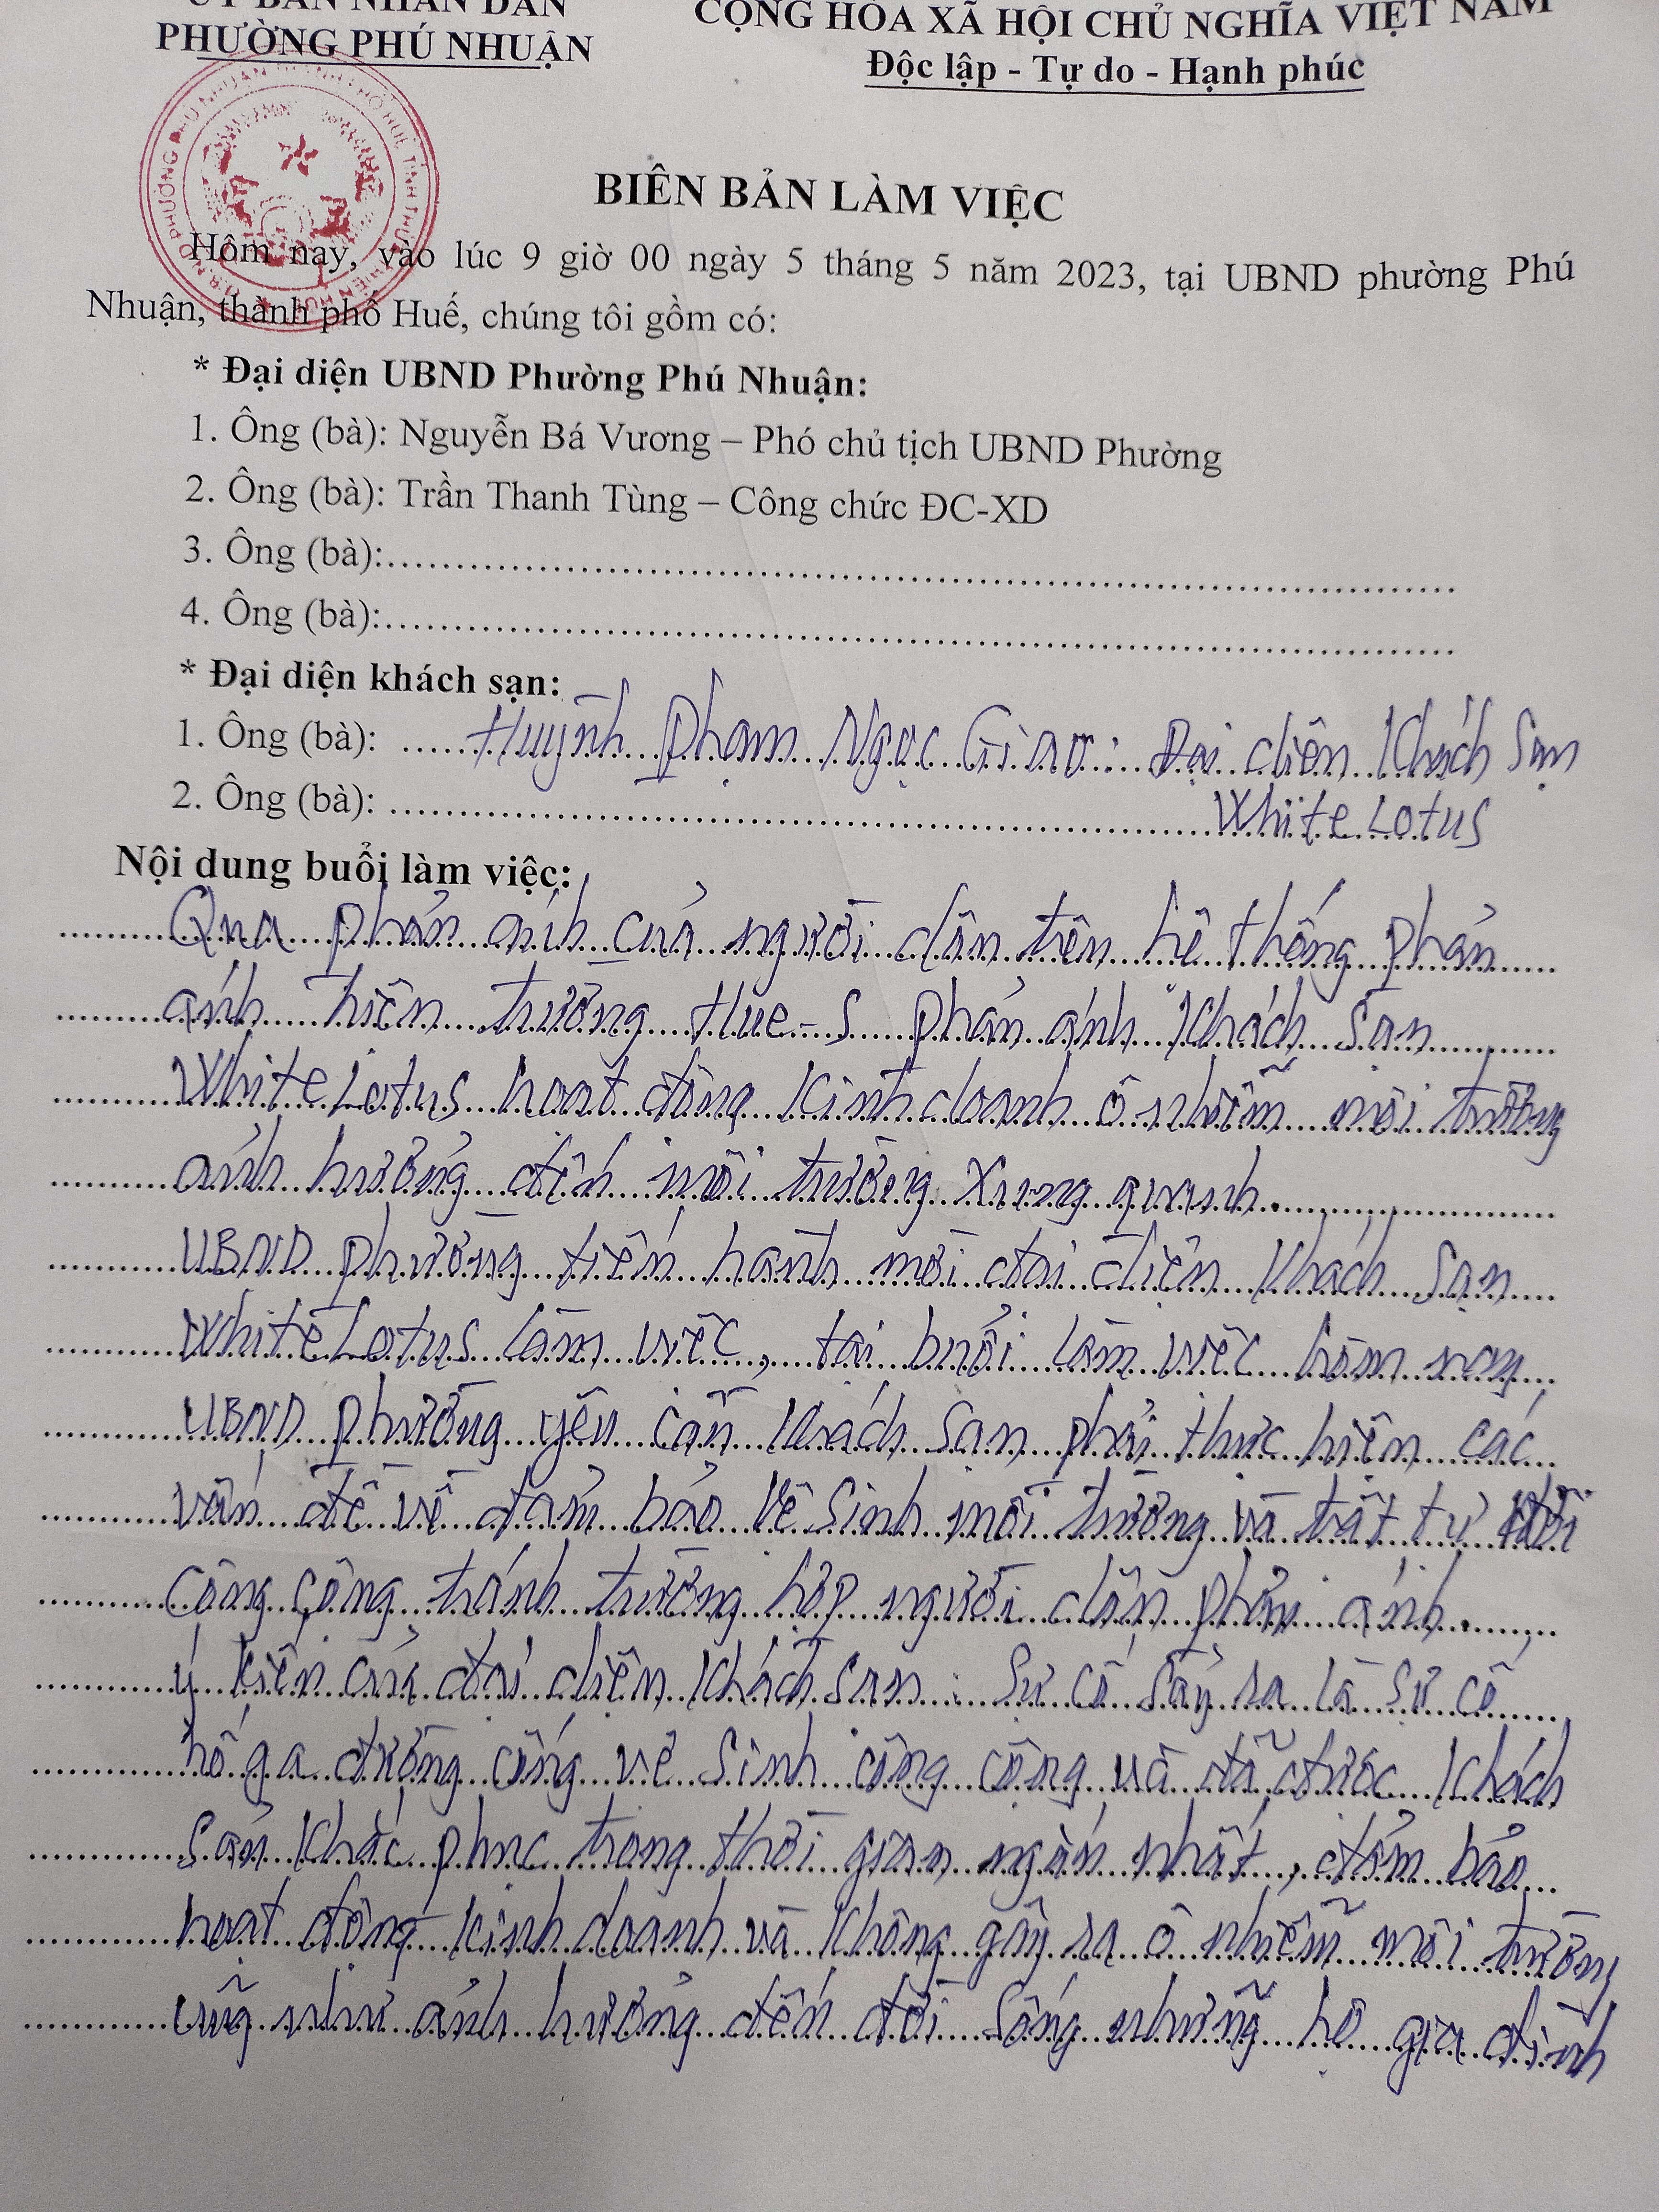 ỦY BAN NHÂN DÂN
PHƯỜNG PHÚ NHUẬN
CỘNG HÒA XÃ HỘI CHỦ NGHĨA VIỆT NAM
Độc lập - Tự do - Hạnh phúc
BIÊN BẢN LÀM VIỆC
Hôm nay, vào lúc 9 giờ 00 ngày 5 tháng 5 năm 2023, tại UBND phường Phú
Nhuận, thành phố Huế, chúng tôi gồm có:
* Đại diện UBND Phường Phú Nhuận:
1. Ông (bà): Nguyễn Bá Vương – Phó chủ tịch UBND Phường
2. Ông (bà): Trần Thanh Tùng – Công chức ĐC-XD
3. Ông (bà):
4. Ông (bà):
* Đại diện khách sạn:
1. Ông (bà): Huỳnh Phạm Ngọc Giao: Đại diện khách sạn
2. Ông (bà): White Lotus
Nội dung buổi làm việc:
Qua phản ánh của người dân trên hệ thống phản
ánh hiện trường Hue-S phản ánh khách sạn
White Lotus hoạt động kinh doanh ô nhiễm môi trường
ảnh hưởng đến môi trường xung quanh.
UBND phường tiến hành mời đại diện khách sạn
White Lotus làm việc, tại buổi làm việc hôm nay,
UBND phường yêu cầu khách sạn phải thực hiện các
vấn đề về đảm bảo vệ sinh môi trường và trật tự
công cộng tránh trường hợp người dân phản ánh.
ý kiến của đại diện khách sạn: Sự cố sảy ra là sự cố
hố ga đường cống vệ sinh công cộng và đã được khách
sạn khắc phục trong thời gian ngắn nhất, đảm bảo
hoạt động kinh doanh và không gây ra ô nhiễm môi trường
cũng như ảnh hưởng đến đời sống những hộ gia đình